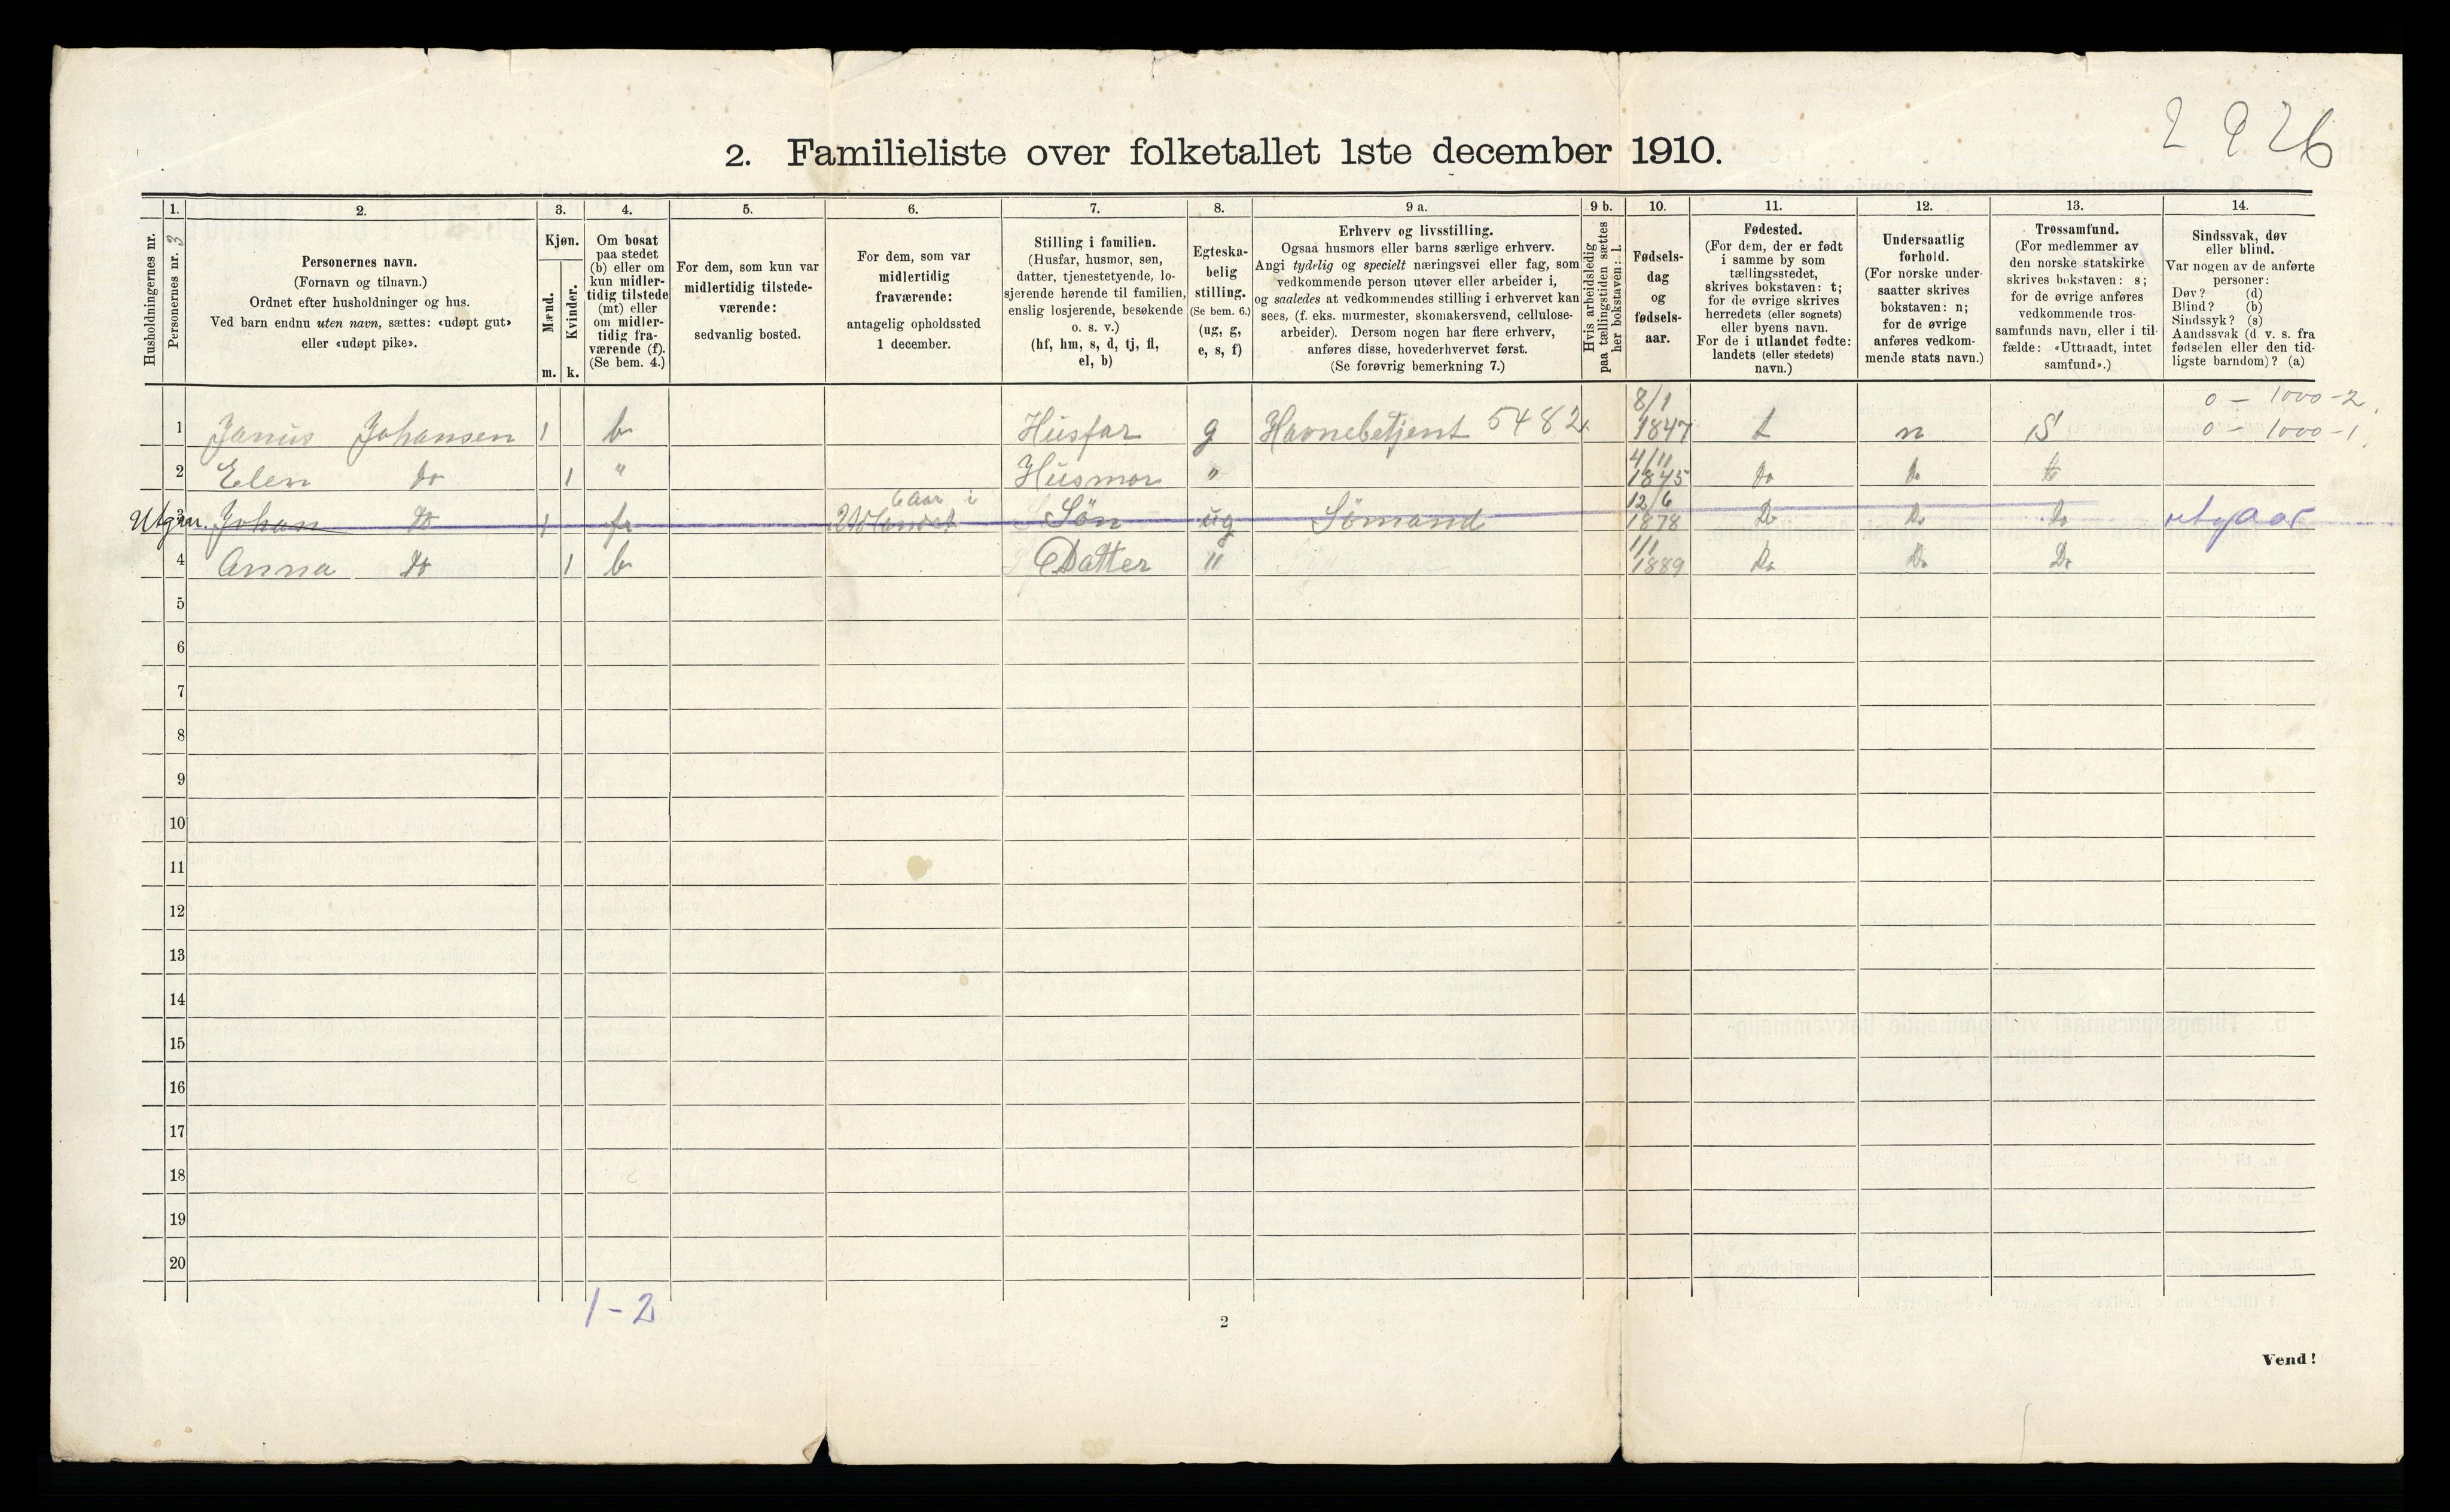 2926
2. Familieliste over folketallet 1ste december 1910.
Husholdningernes nr.
1.
Personernes nr. 3
2.
Personernes navn.
(Fornavn og tilnavn.)
Ordnet efter husholdninger og hus.
Ved barn endnu uten navn, sættes: «udøpt gut»
eller «udøpt pike».
3.
Kjøn.
Mænd.
Kvinder.
m. k.
4.
Om bosat
paa stedet
(b) eller om
kun midler-
tidig tilstede
(mt) eller
om midler-
tidig fra-
værende (f).
(Se bem. 4.)
5.
For dem, som kun var
midlertidig tilstede-
værende:
sedvanlig bosted.
6.
For dem, som var
midlertidig
fraværende:
antagelig opholdssted
1 december.
7.
Stilling i familien.
(Husfar, husmor, søn,
datter, tjenestetyende, lo-
sjerende hørende til familien,
enslig losjerende, besøkende
o. s. v.)
(hf, hm, s, d, tj, fl,
el, b)
8.
Egteska-
belig
stilling.
(Se bem. 6.)
(ug, g,
e, s, f)
9 a.
Erhverv og livsstilling.
Ogsaa husmors eller barns særlige erhverv.
Angi tydelig og specielt næringsvei eller fag, som
vedkommende person utøver eller arbeider i,
og saaledes at vedkommendes stilling i erhvervet kan
sees, (f. eks. murmester, skomakersvend, cellulose-
arbeider). Dersom nogen har flere erhverv,
anføres disse, hovederhvervet først.
(Se forøvrig bemerkning 7.)
9 b.
Hvis arbeidsledig
paa tællingstiden sættes
her bokstaven: l.
10.
Fødsels-
dag
og
fødsels-
aar.
11.
Fødested.
(For dem, der er født
i samme by som
tællingsstedet,
skrives bokstaven: t;
for de øvrige skrives
herredets (eller sognets)
eller byens navn.
For de i utlandet fødte:
landets (eller stedets)
navn.)
12.
Undersaatlig
forhold.
(For norske under-
saatter skrives
bokstaven: n;
for de øvrige
anføres vedkom-
mende stats navn.)
13.
Trossamfund.
(For medlemmer av
den norske statskirke
skrives bokstaven: s;
for de øvrige anføres
vedkommende tros-
samfunds navn, eller i til-
fælde: «Uttraadt, intet
samfund».)
14.
Sindssvak, døv
eller blind.
Var nogen av de anførte
personer:
Døv? (d)
Blind? (b)
Sindssyk? (s)
Aandssvak (d. v. s. fra
fødselen eller den tid-
ligste barndom)? (a)
0 - 1000-2
1 Janus Johansen 1 b Husfar g Havnebetjent 5482 8/1 1847 t n S 0 - 1000-1
2 Elen do 1 " Husmor " 4/11 1845 Do Do
6 Aar i
3 Johan Do 1 f Utlandet Søn ug Sömand 12/6 1878 Do Do Do
4 Anna Do 1 b Datter " 1/1 1889 Do Do Do
5
6
7
8
9
10
11
12
13
14
15
16
17
18
19
20
1-2
2
Vend!